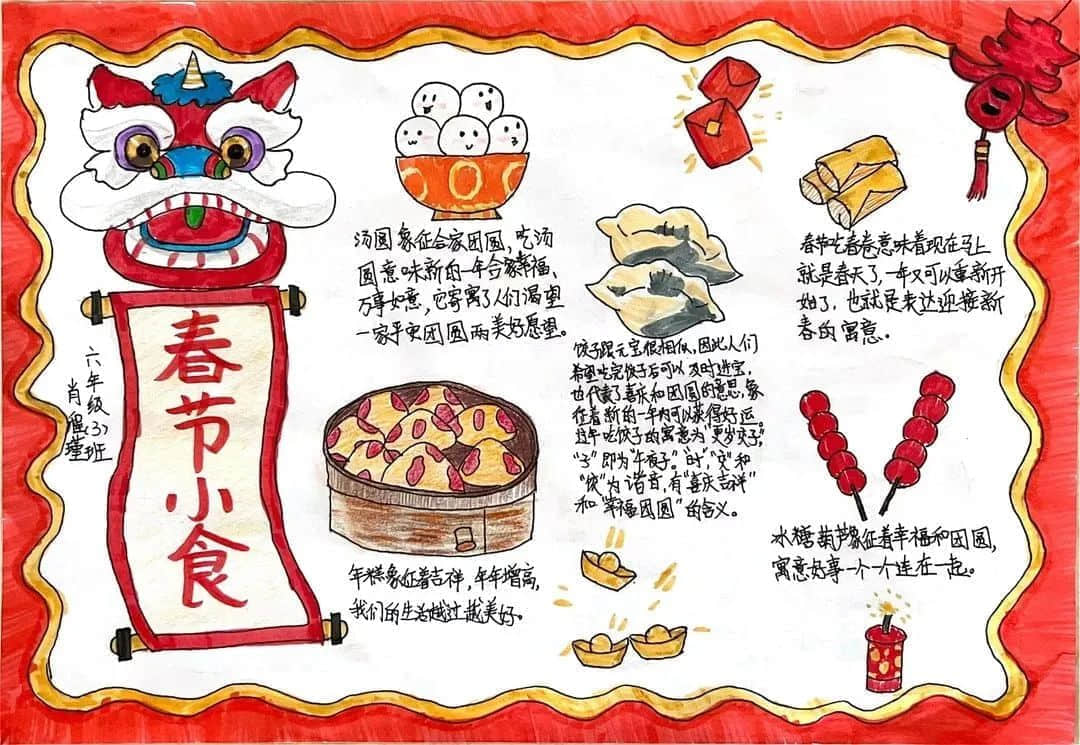 春节小食
六年级(3)班
肖
汤圆象征合家团圆，吃汤
圆意味新的一年合家幸福，
万事如意，它寄寓了人们渴望
一家平安团圆两美好愿望。
年糕象征着吉祥，年年增高，
我们的生活越过越美好。
饺子跟元宝很相似，因此人们
希望吃完饺子后可以及时进宝，
也代表了喜庆和团圆的意思，象
征着新的一年内可以获得好运。
过年吃饺子的寓意为"更岁交子"，
"子"即为"午夜子"。时"，"交"和
"饺"为谐音，有"喜庆吉祥"
和"幸福团圆"的含义。
春节吃春卷意味着现在马上
就是春天了，一年又可以重新开
始了，也就是来达迎接新
春的寓意。
冰糖葫芦象征着幸福和团圆，
寓意好事一个一个连在一起。